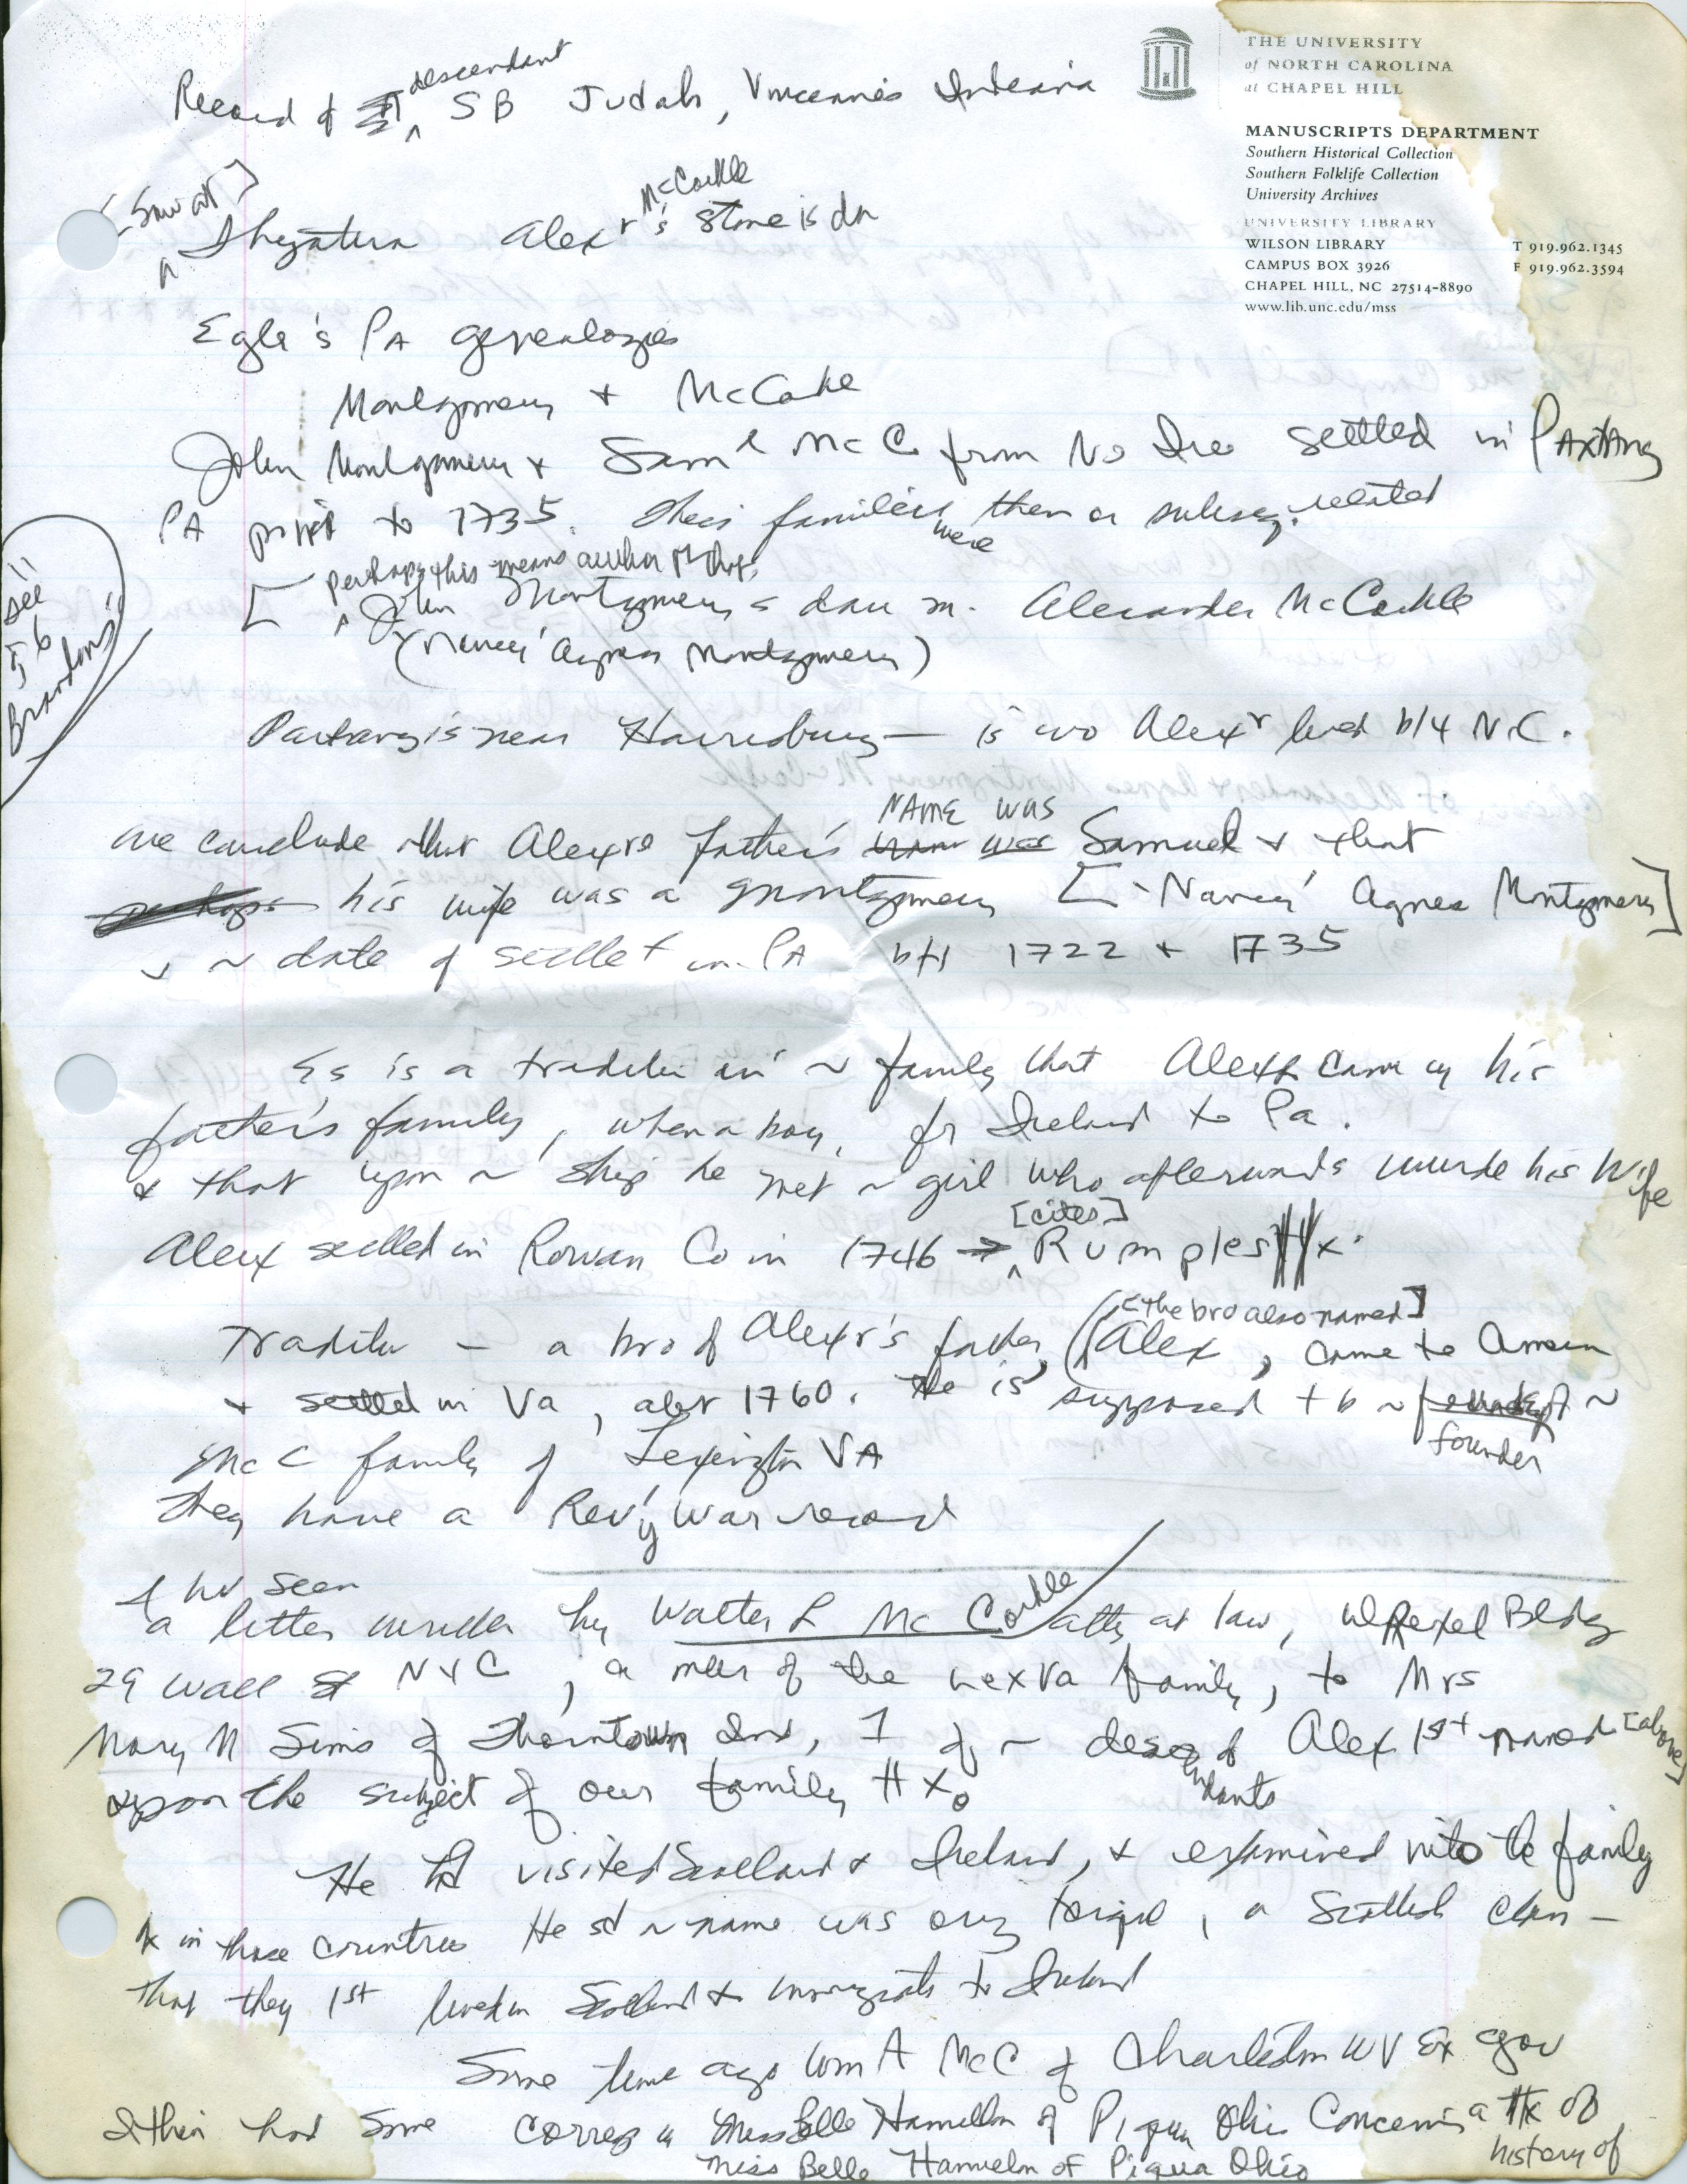 THE UNIVERSITY
of NORTH CAROLINA
at CHAPEL HILL
MANUSCRIPTS DEPARTMENT
Southern Historical Collection
Southern Folklife Collection
University Archives
UNIVERSITY LIBRARY
WILSON LIBRARY
CAMPUS BOX 3926
CHAPEL HILL, NC 27514-8890
www.lib.unc.edu/mss
T 919.962.1345
F 919.962.3594
descendant
Record of SB Judah, Vincennes Indiana
McCorkle
Thyatira Alexr's stone is dn
Egle's PA genealogies
Montgomery + McCorkle
John Montgomery + Saml McC from No Ire settled in PAXTANG
PA prior to 1735. Their families were then or subseq. related
[perhaps this means author of that,
John Montgomery's dau m. Alexander McCorkle
("Nancy" Agnes Montgomery)
see
5 b
Brandons
Paxtang is near Harrisburg — is wo Alexr lived b/4 N.C.
NAME WAS
we conclude that Alexrs father's name was Samuel + that
perhaps his wife was a Montgomery ["Nancy" Agnes Montgomery]
+ ~ date of settlet in PA btw 1722 + 1735
is a tradition in ~ family that Alexr came w his
father's family, when a boy, fr Ireland to Pa.
& that upon ~ ship he met ~ girl who afterwards became his wife
[cites]
Alexr settled in Rowan Co in 1746 → Rumples Hx.
[the bro also named]
Tradition — a bro of Alexr's father, (Alex, came to Amern
+ settled in Va, abt 1760. He is supposed t b ~ founder of ~
founder
McC family of Lexington VA
They have a Rev'y War record
I hv seen
a letter written by Walter L McCorkle atty at law, Drexel Bldg
29 Wall St NYC, a mbr of the Lex Va family, to Mrs
Mary M Sims of Thorntown Ind, 1 of ~ descendants of Alex 1st named [above]
upon the subject of our family Hx.
He hd visited Scotland & Ireland, & examined into the family
hx in those countries He sd ~ name was orig Torquil, a Scottish clan –
That they 1st lived in Scotland & immigrated to Ireland
Some time ago Wm A McC of Charleston WV Ex gov
had some corresp w Miss Belle Hamilton of Piqua Ohio concerning a Hx of
Miss Belle Hamilton of Piqua Ohio
history of